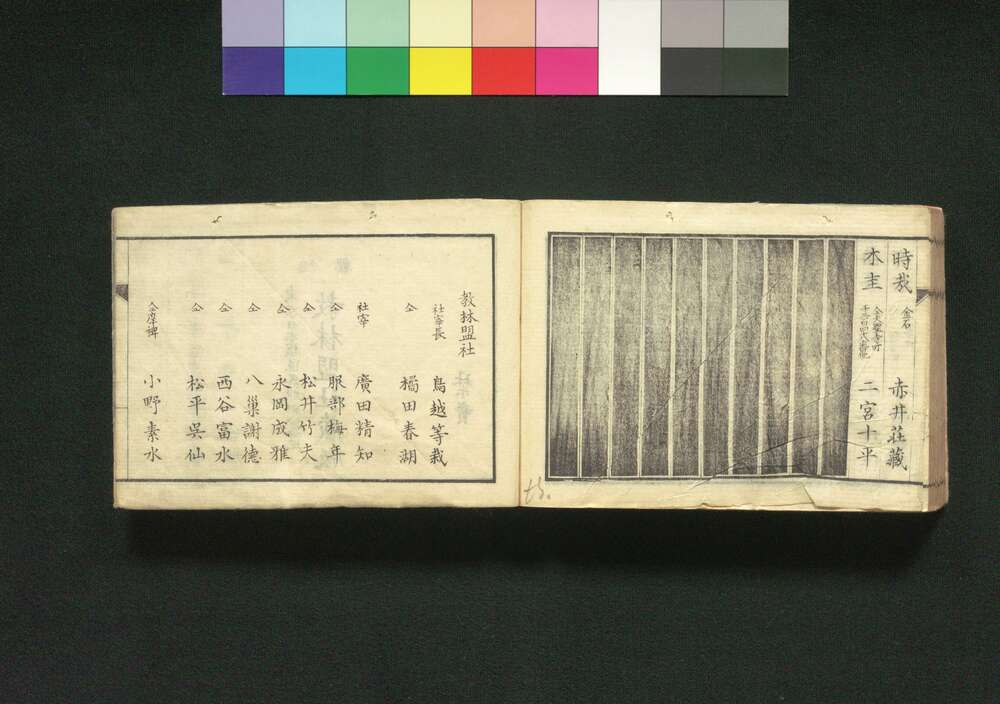 時哉 金石 赤井荘藏
木圭 二宮十平
教林盟社
社宰長 鳥越等栽
仝 橘田春湖
社宰 廣田精知
仝 服部梅年
仝 松井竹夫
仝 永岡成雅
仝 八巢謝德
仝 西谷富水
仝 松平呉仙
仝 小野素水